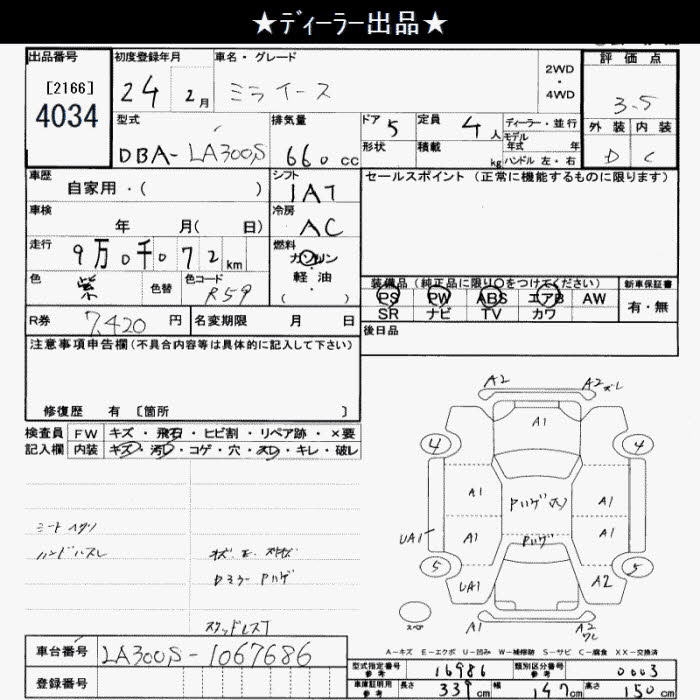 ★ディーラー出品★
出品番号 初度登録年月 車名・グレード 2WD・4WD 評価点
[2166] 24 2月 ミライース 3.5
4034
型式 排気量 ドア 5 定員 4人 ディーラー・並行 外装 内装
DBA-LA300S 660cc 形状 積載 kg モデル年式 年 D C
ハンドル 左・右
車歴 シフト セールスポイント (正常に機能するものに限ります)
自家用・( ) IAT
車検 冷房
年 月( 日) AC
走行 燃料
9万0千072km ガソリン・軽油( )
色 紫 色替 色コード R59 装備品 (純正品に限り○をつけてください) 新車保証書
PS PW ABS エアB AW 有・無
SR ナビ TV カワ
R券 7,420円 名変期限 月 日 後日品
注意事項申告欄(不具合内容等は具体的に記入して下さい)
修復歴 有 [箇所 ]
検査員 FW キズ・飛石・ヒビ割・リペア跡・×要
記入欄 内装 キズ・汚れ・コゲ・穴・スレ・キレ・破レ
A2 A2
A1
4 4
A1 Pハゲ A1
UA1 A1 Pハゲ A1
5 5
UA1 A2
シートヘタリ
ハンドルスレ
ドミラーPハゲ
スタッドレス7
スペア A1 A2
A-キズ E-エクボ U-凹み W-補修跡 S-サビ C-腐食 XX-交換済
車台番号 LA300S-1067686
型式指定番号 参考 16986 類別区分番号 参考 0003
登録番号
車庫証明用 参考 長さ 339cm 幅 147cm 高さ 150cm